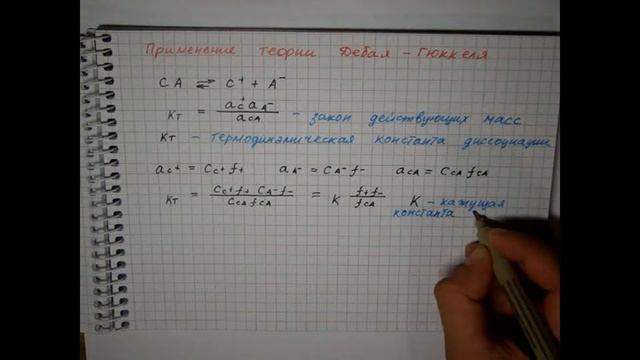 Применение теории Дебая - Гюккеля
CA ⇌ C⁺ + A⁻
Kт = a_C⁺ a_A⁻ / a_CA - закон действующих масс
Kт - термодинамическая константа диссоциации
a_C⁺ = C_C⁺ f₊ a_A⁻ = C_A⁻ f₋ a_CA = C_CA f_CA
Kт = C_C⁺ f₊ C_A⁻ f₋ / C_CA f_CA = K f₊ f₋ / f_CA K - кажущая
константа